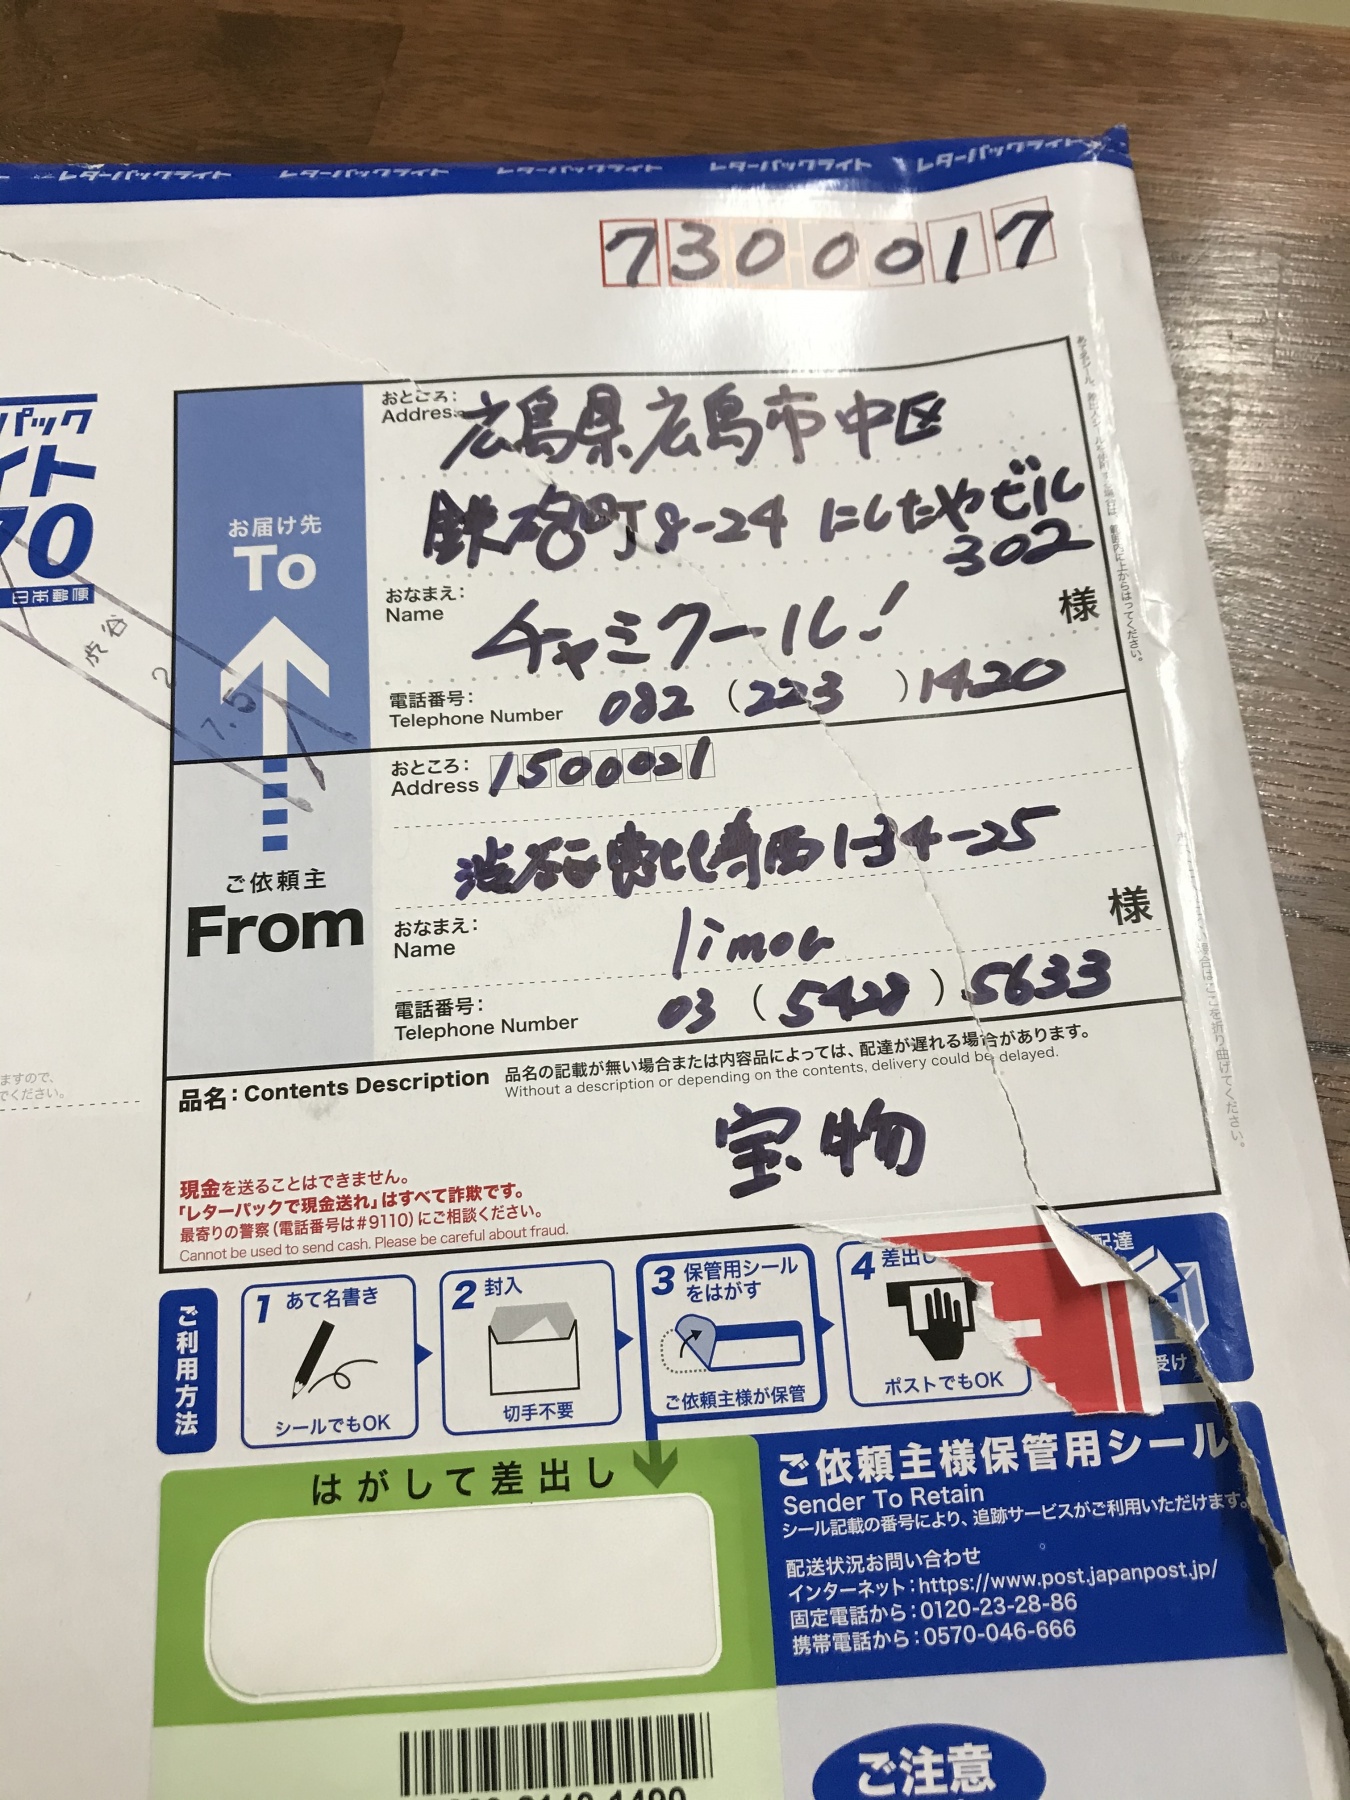 レターパックライト レターパックライト レターパックライト レターパックライト レターパックライト
7300017
パック
イト
70
日本郵便
渋谷
2
7.5
お届け先
To
おところ:
Address
広島県広島市中区
鉄砲町8-24 にしたやビル
302
おなまえ:
Name
チャミクール!
様
電話番号:
Telephone Number
082 (223) 1420
ご依頼主
From
おところ:
Address
1500021
渋谷区恵比寿西1-34-25
おなまえ:
Name
limou
様
電話番号:
Telephone Number
03 (5428) 5633
品名:Contents Description
品名の記載が無い場合または内容品によっては、配達が遅れる場合があります。
Without a description or depending on the contents, delivery could be delayed.
宝物
現金を送ることはできません。
「レターパックで現金送れ」はすべて詐欺です。
最寄りの警察(電話番号は#9110)にご相談ください。
Cannot be used to send cash. Please be careful about fraud.
ますので、
でください。
ご利用方法
1 あて名書き
シールでもOK
2 封入
切手不要
3 保管用シール
をはがす
ご依頼主様が保管
4 差出し
ポストでもOK
配達
受け
はがして差出し
ご依頼主様保管用シール
Sender To Retain
シール記載の番号により、追跡サービスがご利用いただけます。
配送状況お問い合わせ
インターネット:https://www.post.japanpost.jp/
固定電話から:0120-23-28-86
携帯電話から:0570-046-666
ご注意